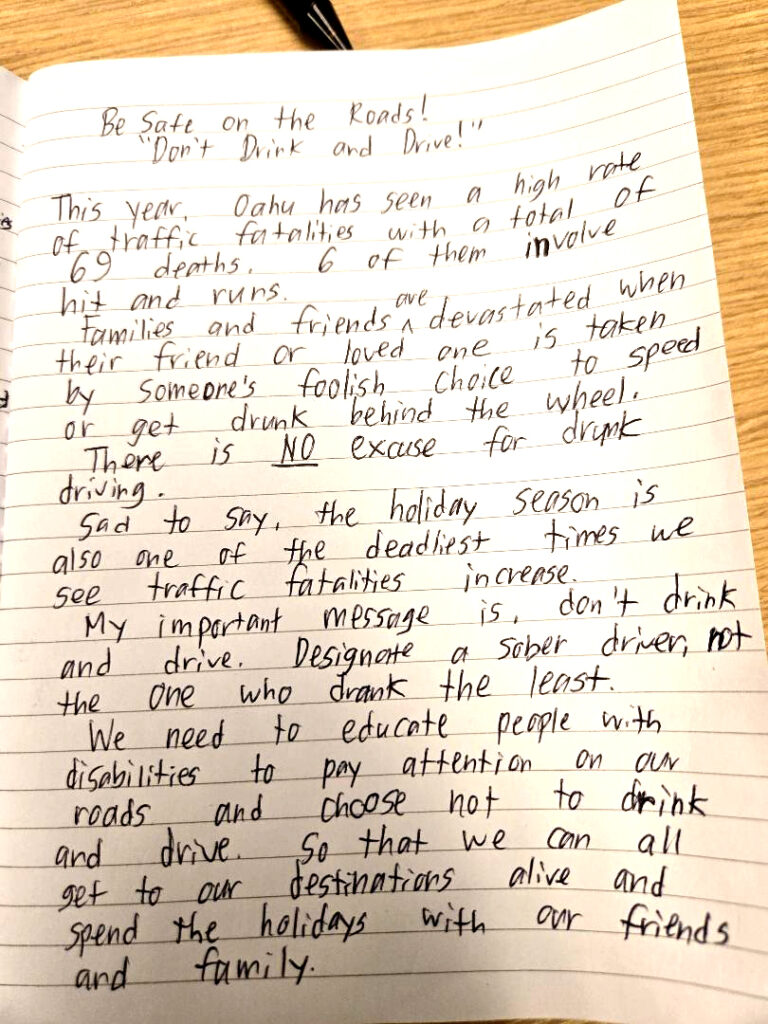 Be Safe on the Roads!
"Don't Drink and Drive!"
This year, Oahu has seen a high rate
of traffic fatalities with a total of
69 deaths. 6 of them involve
hit and runs.
Families and friends ^are devastated when
their friend or loved one is taken
by someone's foolish choice to speed
or get drunk behind the wheel.
There is NO excuse for drunk
driving.
Sad to say, the holiday season is
also one of the deadliest times we
see traffic fatalities increase.
My important message is, don't drink
and drive. Designate a sober driver, not
the one who drank the least.
We need to educate people with
disabilities to pay attention on our
roads and choose not to drink
and drive. So that we can all
get to our destinations alive and
spend the holidays with our friends
and family.